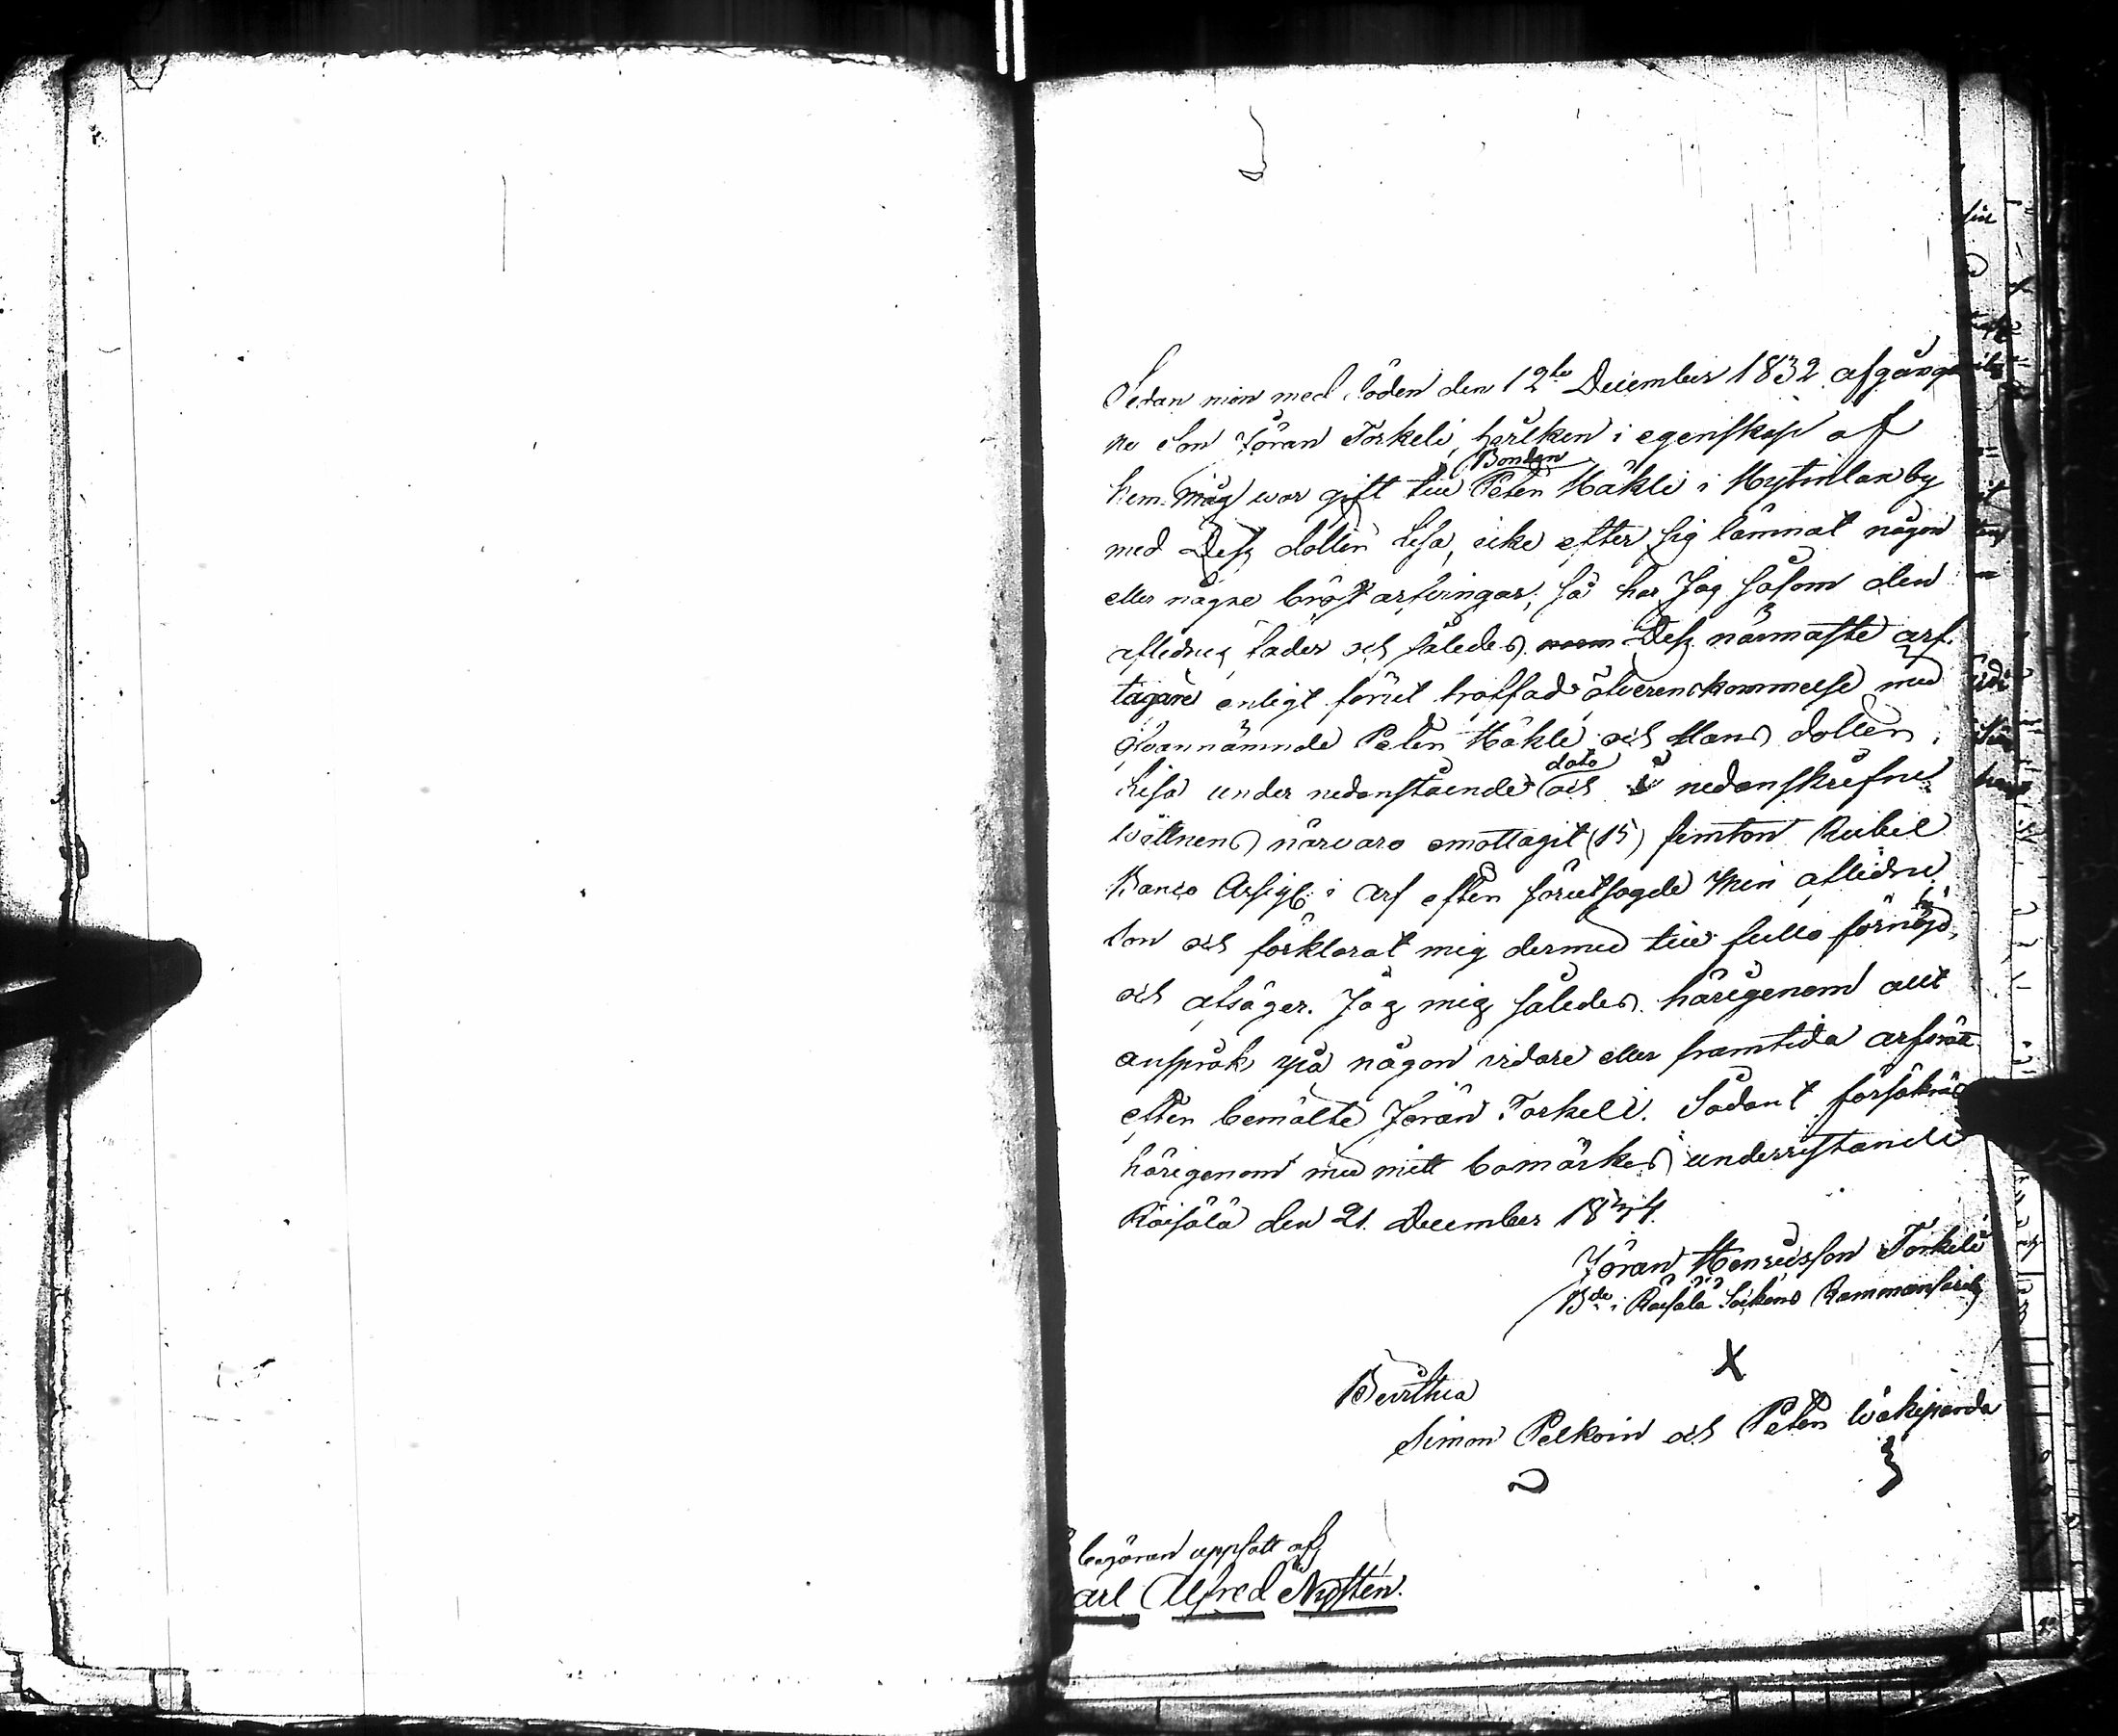 Sedan min med döden den 12te December 1832 afgång
ne son Jöran Torkeli, hvilken i egenskap af
hem måg war gift till Bonden Peter Häkli i Mytinlax by
med Dess dotter Lisa, icke efter sig lämnat någon
eller några bröst arfvingar; så har Jag såsom den
aflidnes fader och således Dess närmaste arf
tagare enligt förut träffad öfverenskommelse med
ofvannämnde Peter Häkli och Hans dotter
Lisa under nedanstående dato och i nedanskrefne
wittnens närvaro emottagit (15) femton Rubel
Banco Assign i arf efter förutsagde Min aflidne
son och förklarat mig dermed till fullo förnöjd,
och afsäger Jag mig således härigenom allt
anspråk på någon vidare eller framtida arfsrätt
efter bemälte Jöran Torkeli. Sådant försäkras
härigenom med mitt bomärkes underristande
Räisälä den 21 December 1844.
Jöran Henricsson Torkeli
Bde i Räisälä Sockens Kammensari
X
Bevittna
Simon Pelkoin och Peter Wäkiparda
begäran uppsatt af
arl Alfred Nysten.